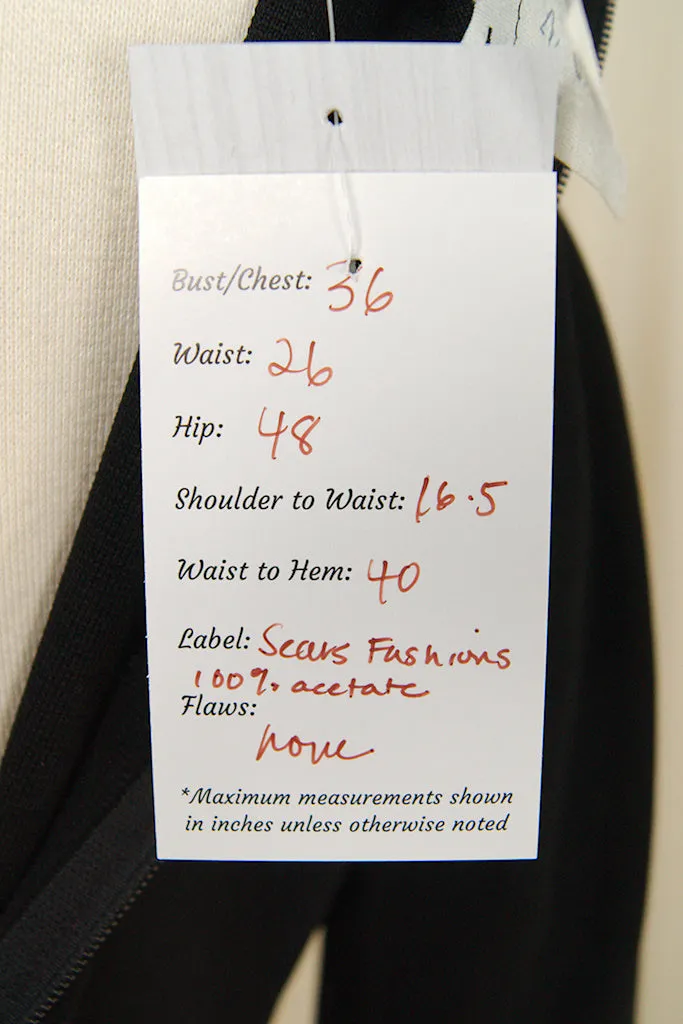 Bust/Chest: 36
Waist: 26
Hip: 48
Shoulder to Waist: 16.5
Waist to Hem: 40
Label: Sears Fashions
100% acetate
Flaws:
none
*Maximum measurements shown
in inches unless otherwise noted